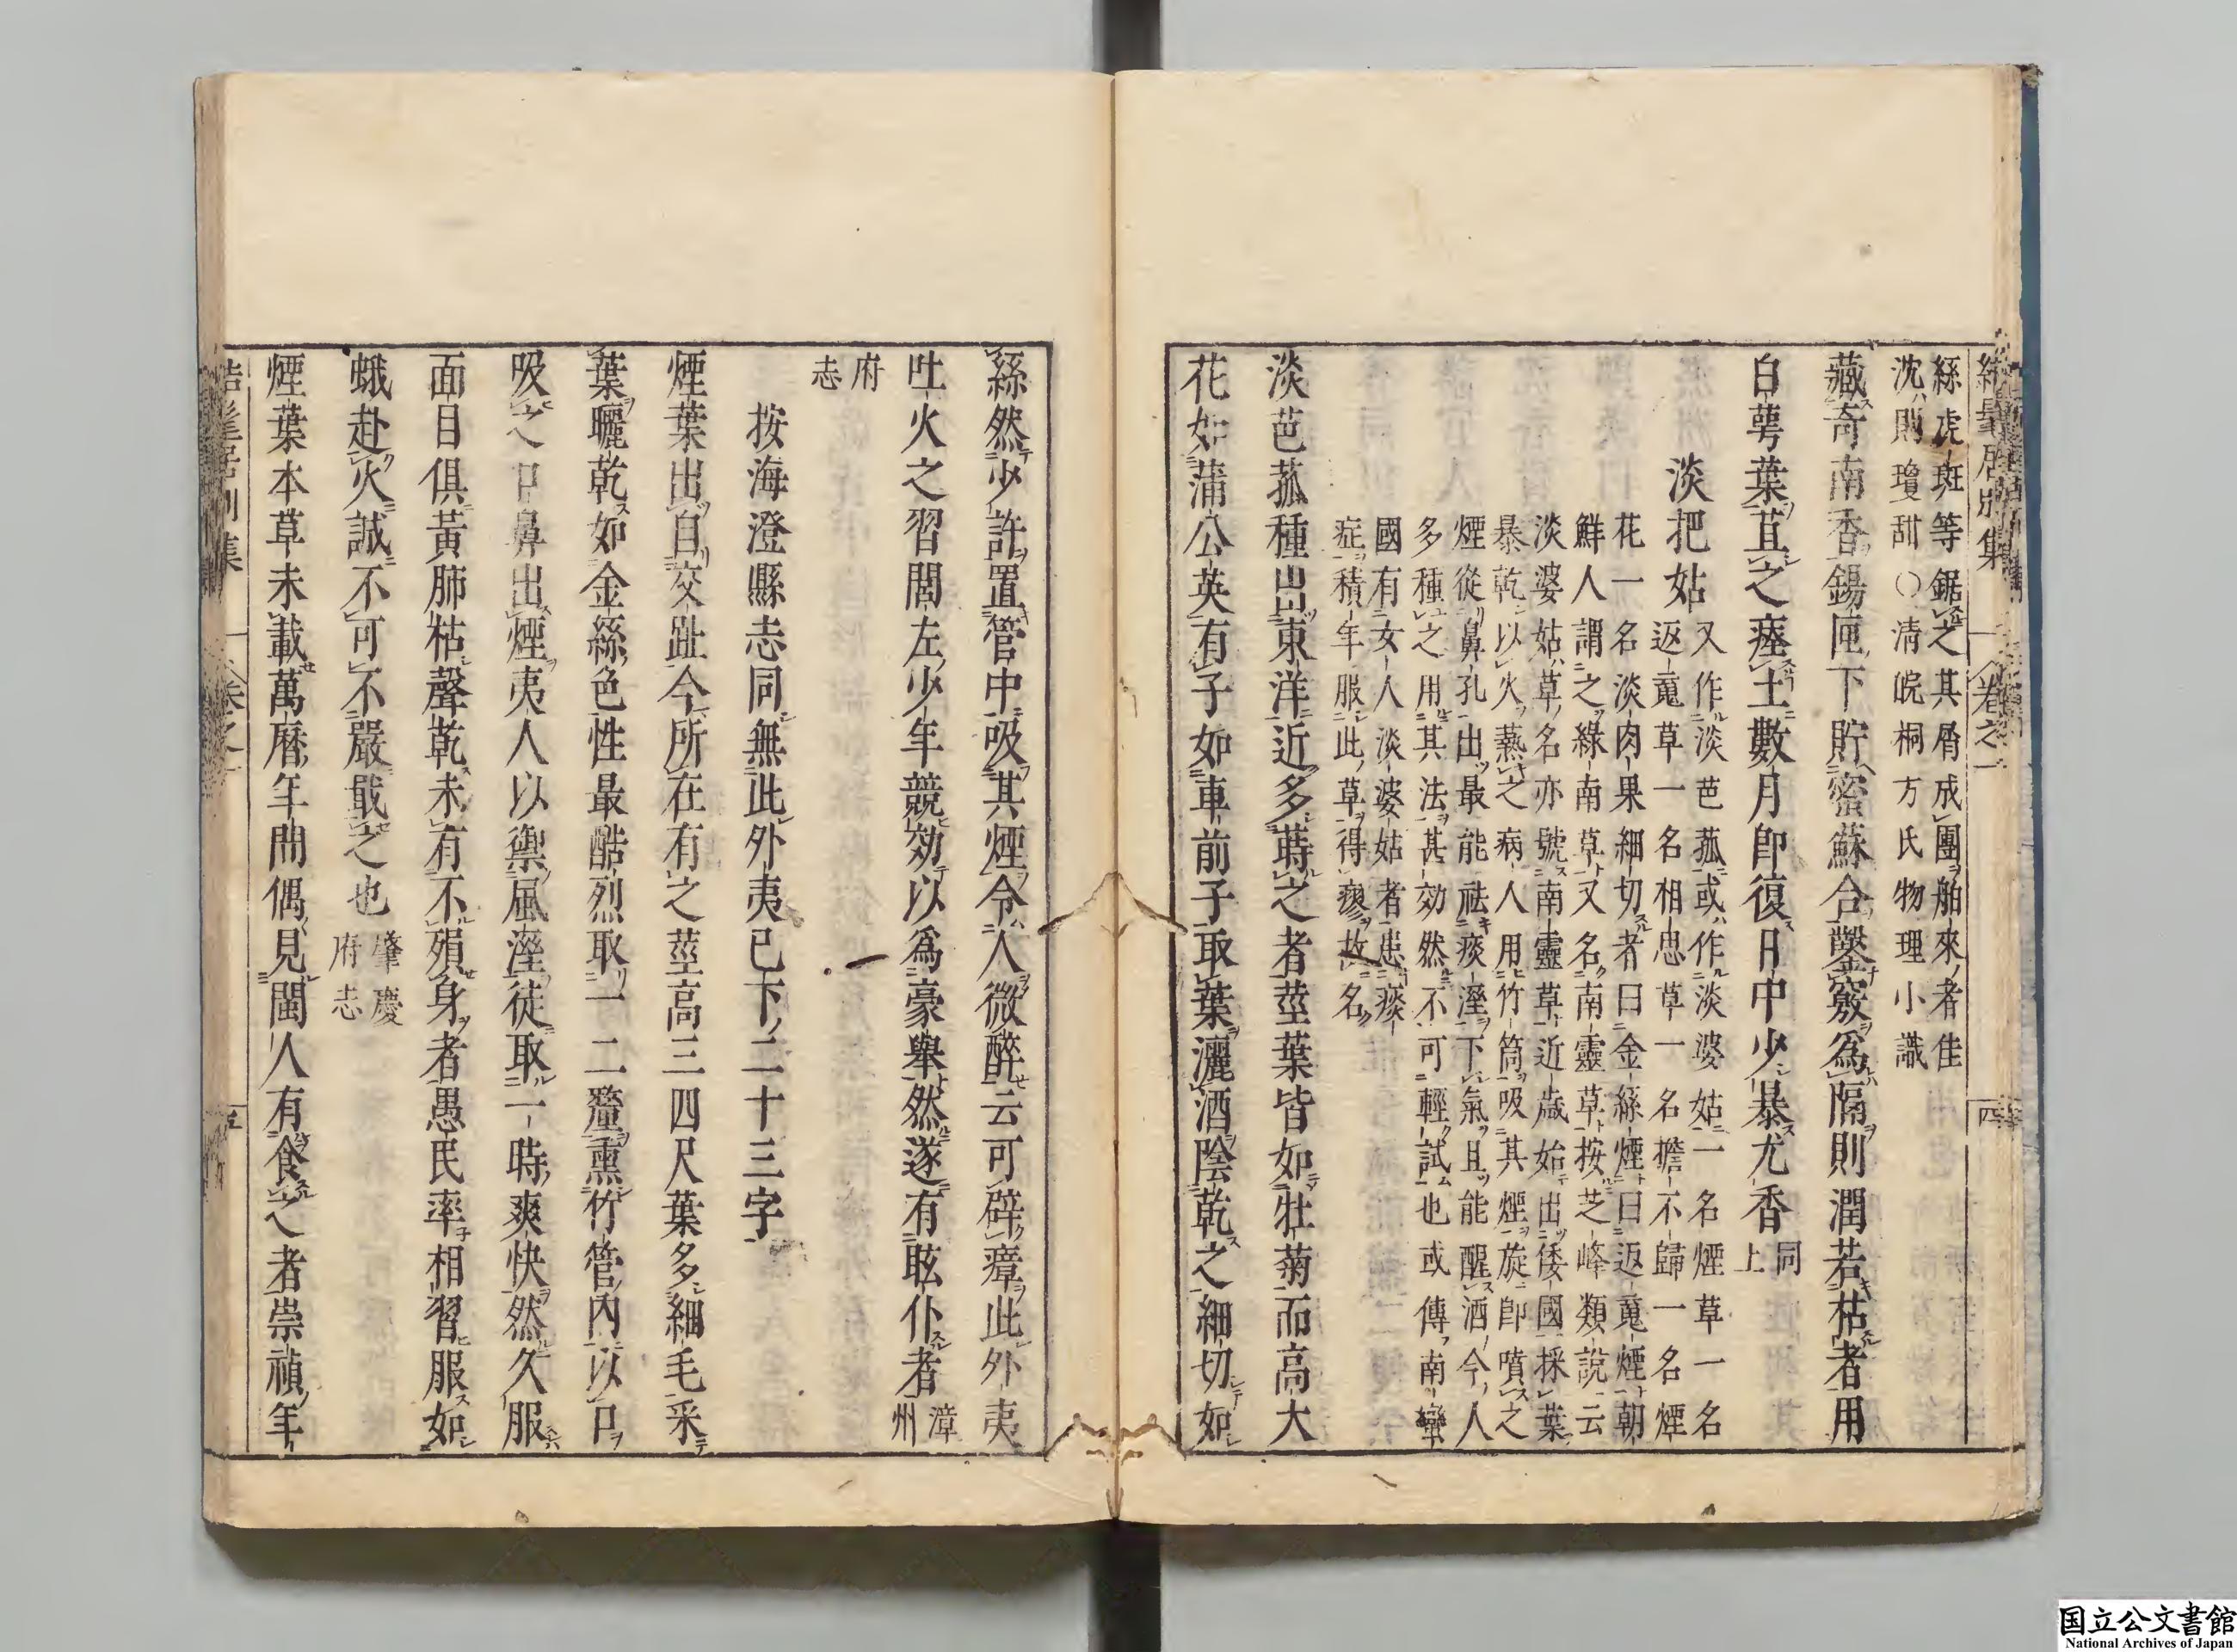 結髦居別集 卷之一 四
絲虎斑等鋸之其屑成團舶來者佳
沈則瓊甜〇清皖桐方氏物理小識
藏奇南香錫匣下貯蜜蘇合鑿竅為隔則潤若枯者用
白萼葉苴之瘞土數月卽復日中少暴尤香同上
淡把姑
又作淡芭菰或作淡婆姑一名煙草一名
返魂草一名相思草一名擔不歸一名煙
花一名淡肉果細切者曰金絲煙曰返魂煙朝
鮮人謂之綠南草又名南靈草按芝峰類說云
淡婆姑草名亦號南靈草近歲始出倭國採葉
暴乾以火爇之病人用竹筒吸其煙旋卽噴之
煙從鼻孔出最能祛痰溼下氣且能醒酒今人
多種之用其法甚効然不可輕試也或傳南蠻
國有女人淡婆姑者患痰
症積年服此草得瘳故名
淡芭菰種出東洋近多蒔之者莖葉皆如牡菊而高大
花如蒲公英有子如車前子取葉灑酒陰乾之細切如
絲然少許置管中吸其煙令人微醉云可辟瘴此外夷
吐火之習閭左少年競効以為豪舉然遂有眩仆者漳州
府志
按海澄縣志同無此外夷已下二十三字
煙葉出自交趾今所在有之莖高三四尺葉多細毛采
葉曬乾如金絲色性最酷烈取一二釐熏竹管內以口
吸之口鼻出煙夷人以禦風溼徒取一時爽快然久服
面目俱黃肺枯聲乾未有不殞身者愚民率相習服如
蛾赴火誠不可不嚴戢之也肇慶府志
煙葉本草未載萬曆年間偶見閩人有食之者崇禎年
結髦居別集 卷之一 五
国立公文書館
National Archives of Japan